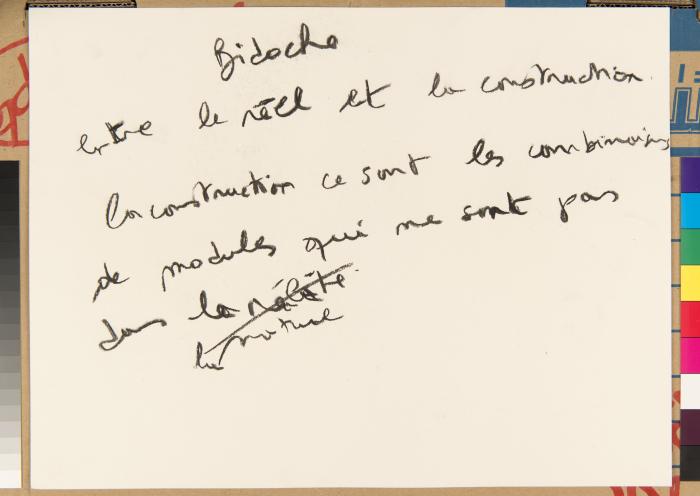 Bidoche
entre le réel et la construction
la construction ce sont les combinaisons
de modules qui ne sont pas
dans la réalité
la nature